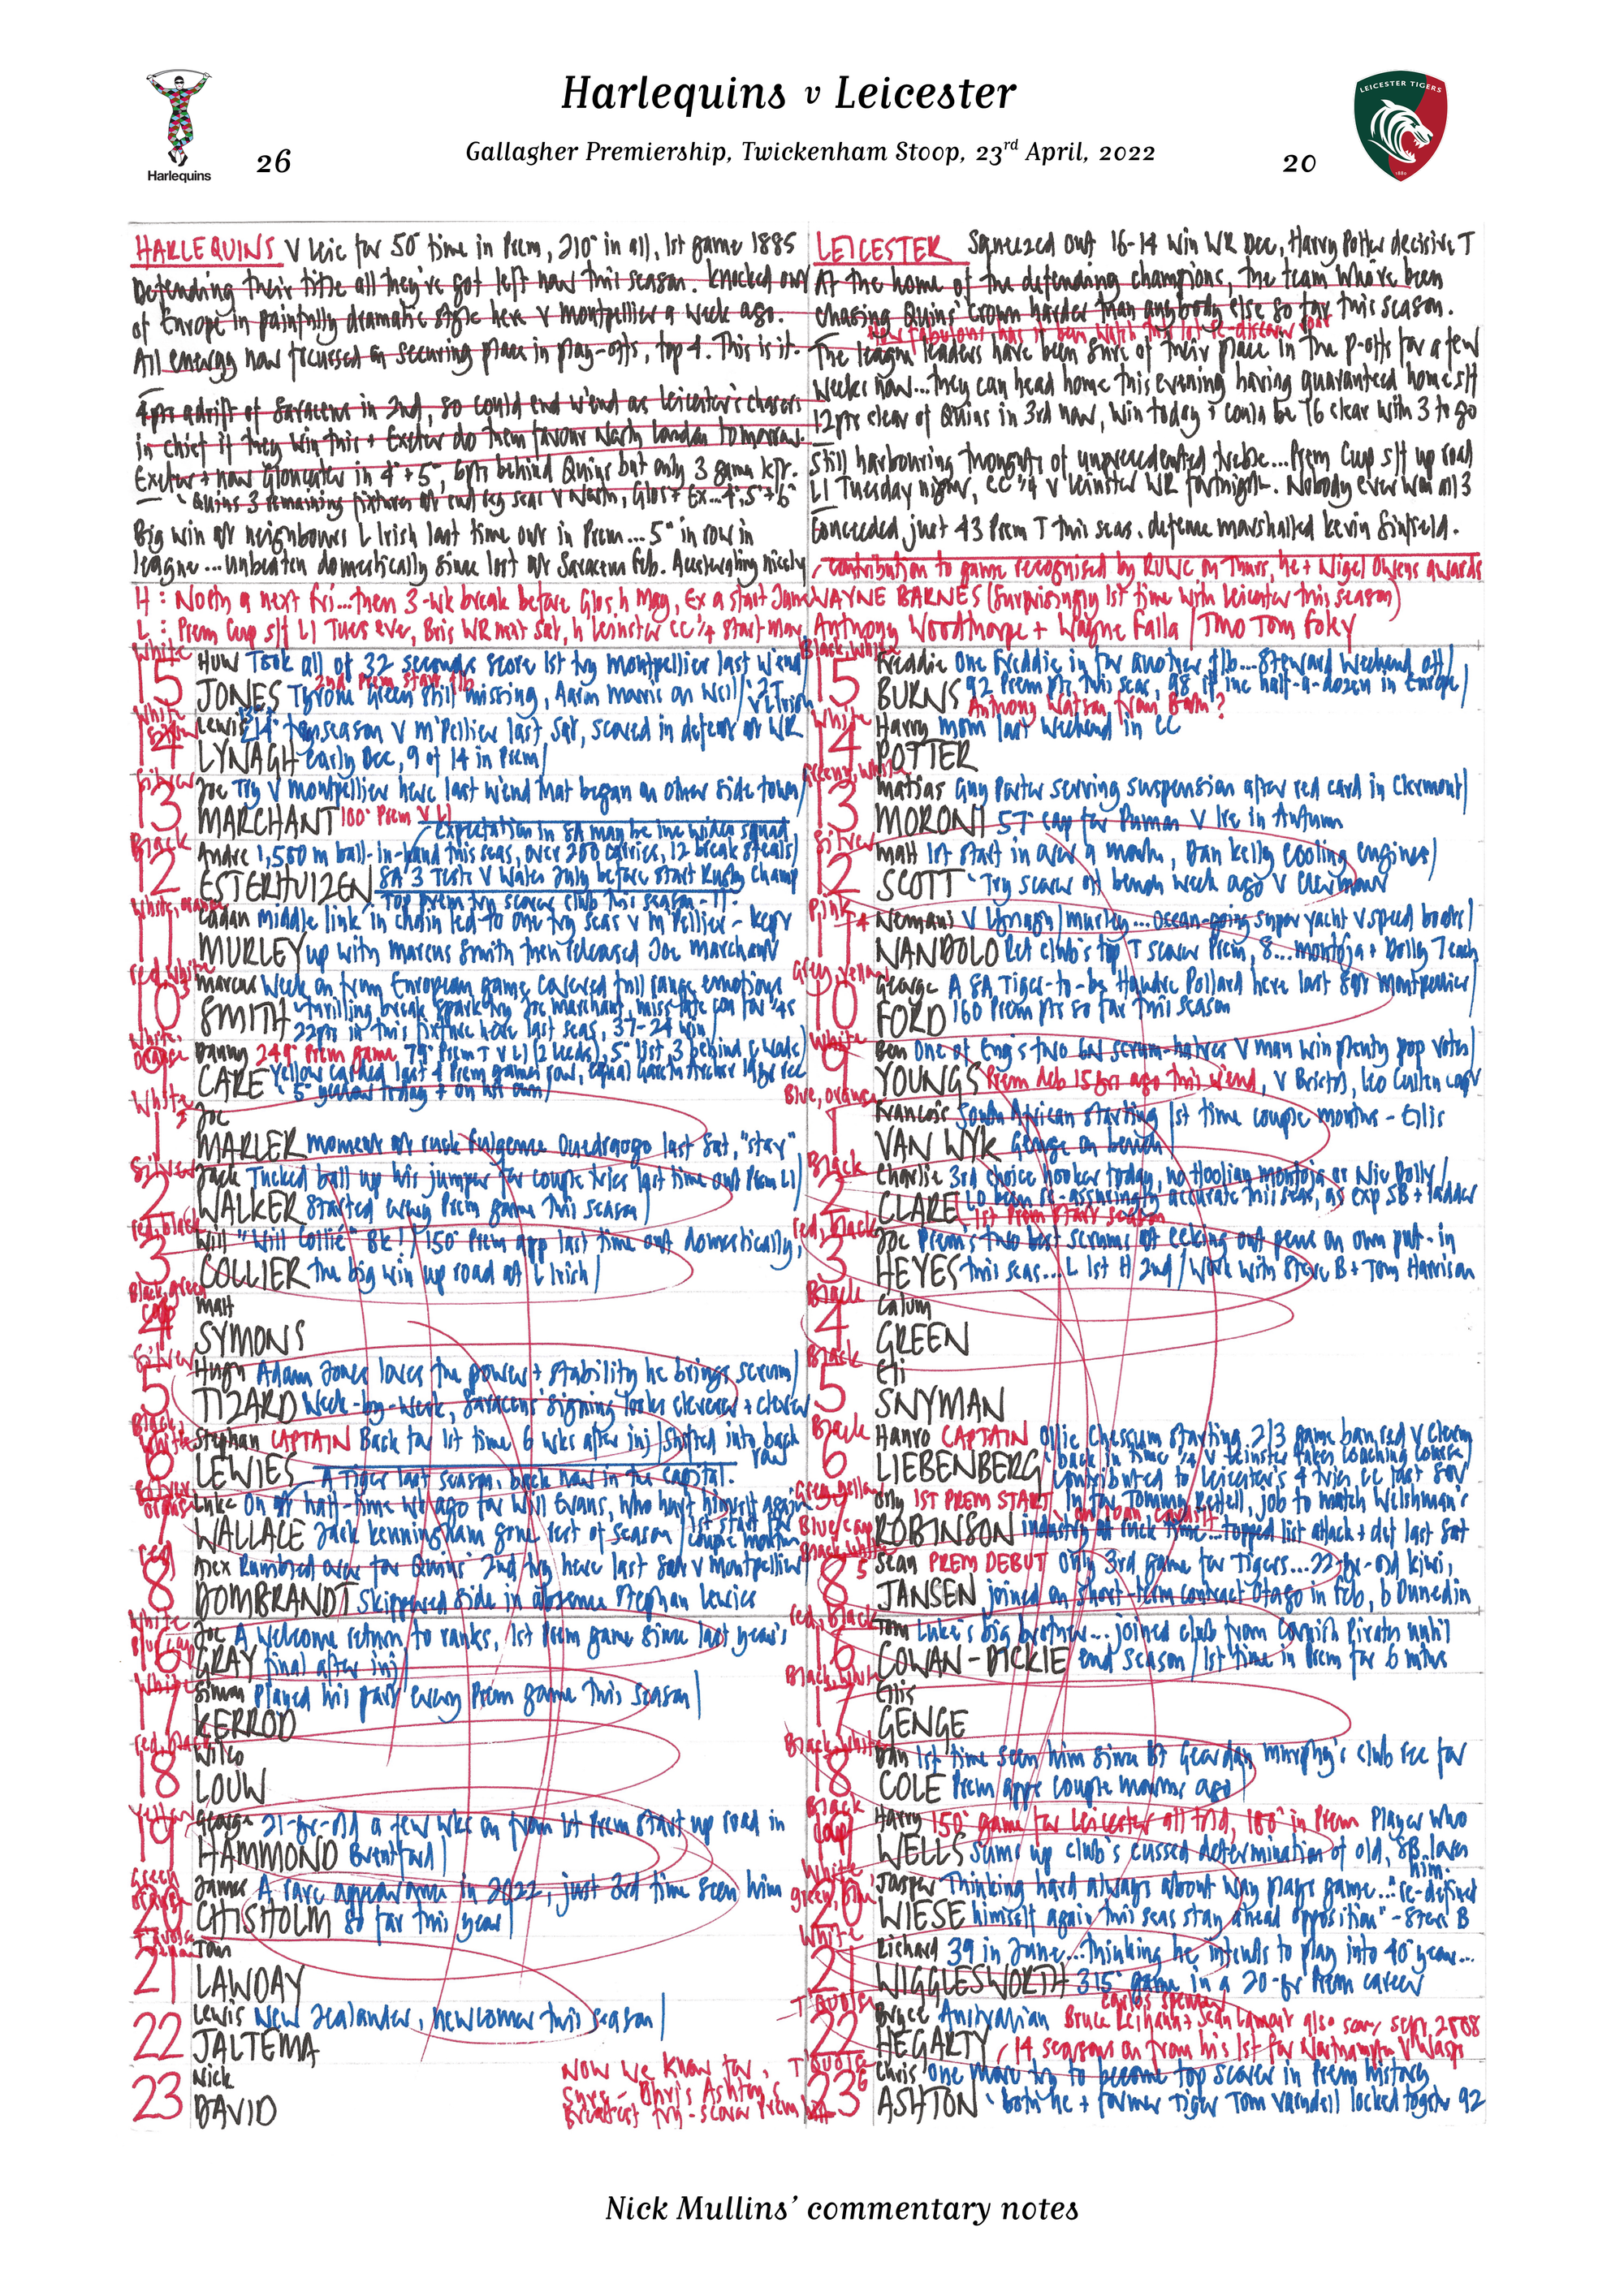 Harlequins v Leicester
Gallagher Premiership, Twickenham Stoop, 23rd April, 2022
Harlequins
26
20
LEICESTER TIGERS
1880
HARLEQUINS V Leic for 50° time in Prem, 210° in all, 1st game 1885
Defending their title all they've got left now this season. Knocked out
of Europe in painfully dramatic style here v Montpellier a week ago.
All energy now focussed on securing place in play-offs, top 4. This is it.
4pts adrift of Saracens in 2nd, so could end w'end as Leicester's chasers
in chief if they win this + Exeter do them favour North London tomorrow.
Exeter + now Gloucester in 4° + 5°, 6pts behind Quins but only 3 games left.
Quins 3 remaining fixtures of reg seas v North, Glos + Ex...4°, 5° + 6°
Big win at neighbours L Irish last time out in Prem...5° in row in
league...unbeaten domestically since lost at Saracens Feb. Accelerating nicely
LEICESTER Squeezed out 16-14 win WR Dec, Harry Potter decisive T
At the home of the defending champions, the team who've been
chasing Quins' crown harder than anybody else so far this season.
How fabulous has it been watch this lot re-discover
The league leaders have been sure of their place in the p-offs for a few
weeks now...they can head home this evening having guaranteed home s/f
12pts clear of Quins in 3rd now, win today + could be 16 clear with 3 to go
Still harbouring thoughts of unprecedented treble...Prem Cup s/f up road
LI Tuesday night, CC ¼ v Leinster WR fortnight. Nobody ever won all 3
Conceded just 43 Prem T this seas. defence marshalled Kevin Sinfield.
contribution to game recognised by RUWC on Thurs, he + Nigel Owens awards
H: North a next Fri...then 3-wk break before Glos h May, Ex a start June
L: Prem Cup s/f LI Tues eve, Bris WR next Sat, h Leinster CC ¼ start May
WAYNE BARNES (surprisingly 1st time with Leicester this season)
Anthony Woodthorpe + Wayne Falla / TMO Tom Foley
White
15 Huw JONES Took all of 32 seconds score 1st try Montpellier last w'end
2nd Prem start f/b
Tyrone Green still missing, Aaron Morris on Well/
White
14 Lewis LYNAGH 14° try season v M'pellier last Sat, scored in defeat at WR
early Dec, 9 of 14 in Prem/
Silver
13 Joe MARCHANT Try v Montpellier here last w'end that began on other side town/
100° Prem v LI
Expectation in SA may be inc wider squad
Black
12 Andre ESTERHUIZEN 1,500 m ball-in-hand this seas, over 200 carries, 12 break steals/
SA 3 Tests v Wales July before start Rugby Champ
Top Prem try scorer club this season - 11.
White, orange
11 Cadan MURLEY middle link in chain led to one try seas v M'pellier - kept
up with Marcus Smith then released Joe Marchant
Red, white
10 Marcus SMITH Week on from European game covered full range emotions
thrilling break spark try Joe Marchant, miss late con for '4s
22pts in this fixture here last seas, 37-24 win/
White, orange
9 Danny CARE 249° Prem game 79° Prem T v LI (2 Leeds), 5° list, 3 behind C Wade/
Yellow carded last 4 Prem games row, equal Gareth Archer 1998 rec
5° yellow today + on his own/
White
1 Joe MARLER moment at ruck Fulgence Ouedraogo last Sat, "stay"
Silver
2 Jack WALKER Tucked ball up his jumper for couple tries last time out Prem LI/
Started every Prem game this season/
red, black
3 Will COLLIER "Will Collie" BK!/ 150° Prem app last time out domestically,
the big win up road at L Irish/
Black, green cap
4 Matt SYMONS
Silver
5 Hugh TIZARD Adam Jones loves the power + stability he brings scrum/
Week-by-week, Saracens' signing looks cleverer + clever
Black, white
6 Stephan LEWIES CAPTAIN Back for 1st time 6 wks after inj/ Shifted into back row
A Tiger last season, back now in the capital.
7 Luke WALLACE On at half-time wk ago for Will Evans, who hurt himself again
Jack Kenningham gone rest of season/ 1st start for couple months
red
8 Alex DOMBRANDT Rumbled over for Quins' 2nd try here last Sat v Montpellier
Skippered side in absence Stephan Lewies
White, Blue cap
16 Joe GRAY A welcome return to ranks, 1st Prem game since last year's
final after inj/
White
17 Simon KERROD Played his part every Prem game this season/
red, black
18 Wilco LOUW
Yellow
19 George HAMMOND 21-yr-old a few wks on from 1st Prem start up road in
Brentford/
Green
20 James CHISHOLM A rare appearance in 2022, just 3rd time seen him
so far this year/
21 Tom LAWDAY
22 Lewis JALTEMA New Zealander, newcomer this season/
23 Nick DAVID
Now we know for
sure - Chris Ashton's
Greatest try-scorer Prem
Black, White
15 Freddie BURNS One Freddie in for another f/b...Steward weekend off/
92 Prem pts this seas, 98 if inc half-a-dozen in Europe/
Anthony Watson from Bath?
White
14 Harry POTTER MOM last weekend in CC
Green, White
13 Matias MORONI Guy Porter serving suspension after red card in Clermont/
57° cap for Pumas v Ire in Autumn
Silver
12 Matt SCOTT 1st start in over a month, Dan Kelly cooling engines/
Try scorer off bench week ago v Clermont
Pink
11 Nemani NANDOLO V Lynagh/Murley...ocean-going super yacht v speed boats/
Led club's top T scorer Prem, 8...Montoja + Dolly 7 each
Grey, yellow
10 George FORD A SA Tiger-to-be Handre Pollard here last Sat Montpellier/
160 Prem pts so far this season
White
9 Ben YOUNGS One of Eng's two scrum-halves v man win plenty pop votes/
Prem deb 15yrs ago this w'end, v Bristol, Leo Cullen capt
Blue, orange
1 Francois VAN WYK South African starting 1st time couple months - Ellis
Genge on bench
Black
2 Charlie CLARE 3rd choice hooker today, no Hooligan Montoja or Nic Dolly/
LO been re-assuringly accurate this seas, as exp SB + ladder
1st Prem start season
red, black
3 Joe HEYES Prem's two best scrums at eeking out pens on own put-in
this seas...L 1st H 2nd/ Work with Steve B + Tom Harrison
Black
4 Calum GREEN
Black
5 Eli SNYMAN
Black
6 Hanro LIEBENBERG CAPTAIN Ollie Chessum starting 2/3 game ban red v Clerm
back in time ¼ v Leinster takes coaching course
contributed to Leicester's 4 tries CC last Sat
Green, yellow
7 Olly ROBINSON 1ST PREM START In for Tommy Reffell, job to match Welshman's
on loan Cardiff
industry at ruck time...topped list attack + def last Sat
Blue cap
Black, white
8 Sean JANSEN PREM DEBUT only 3rd game for Tigers...22-yr-old kiwi,
joined on short-term contract Otago in Feb, b Dunedin
red, Black
16 Tom COWAN-DICKIE Luke's big brother...joined club from Cornish Pirates until
end season/ 1st time in Prem for 6 mths
Black, White
17 Ellis GENGE
Black, white
18 Dan COLE 1st time seen him since BT Geordan Murphy's club rec for
Prem apps couple months ago
Black cap
19 Harry WELLS 150° game for Leicester all told, 100° in Prem Player who
sums up club's cussed determination of old, SB loves him.
White
20 Jasper WIESE Thinking hard always about way plays game..."re-defined
himself again this seas stay ahead opposition" - Steve B
White
21 Richard WIGGLESWORTH 39 in June...thinking he intends to play into 40° year...
315° game in a 20-yr Prem career
T'Quoise
22 Bryce HEGARTY Australian Bruce Leihana + Sean Lamont also scor, Sept 2008
Carlos Spencer
14 seasons on from his 1st for Northampton v Wasps
T'Quoise
23 Chris ASHTON one more try to become top scorer in Prem history
both he + former Tiger Tom Varndell locked together 92
Nick Mullins' commentary notes